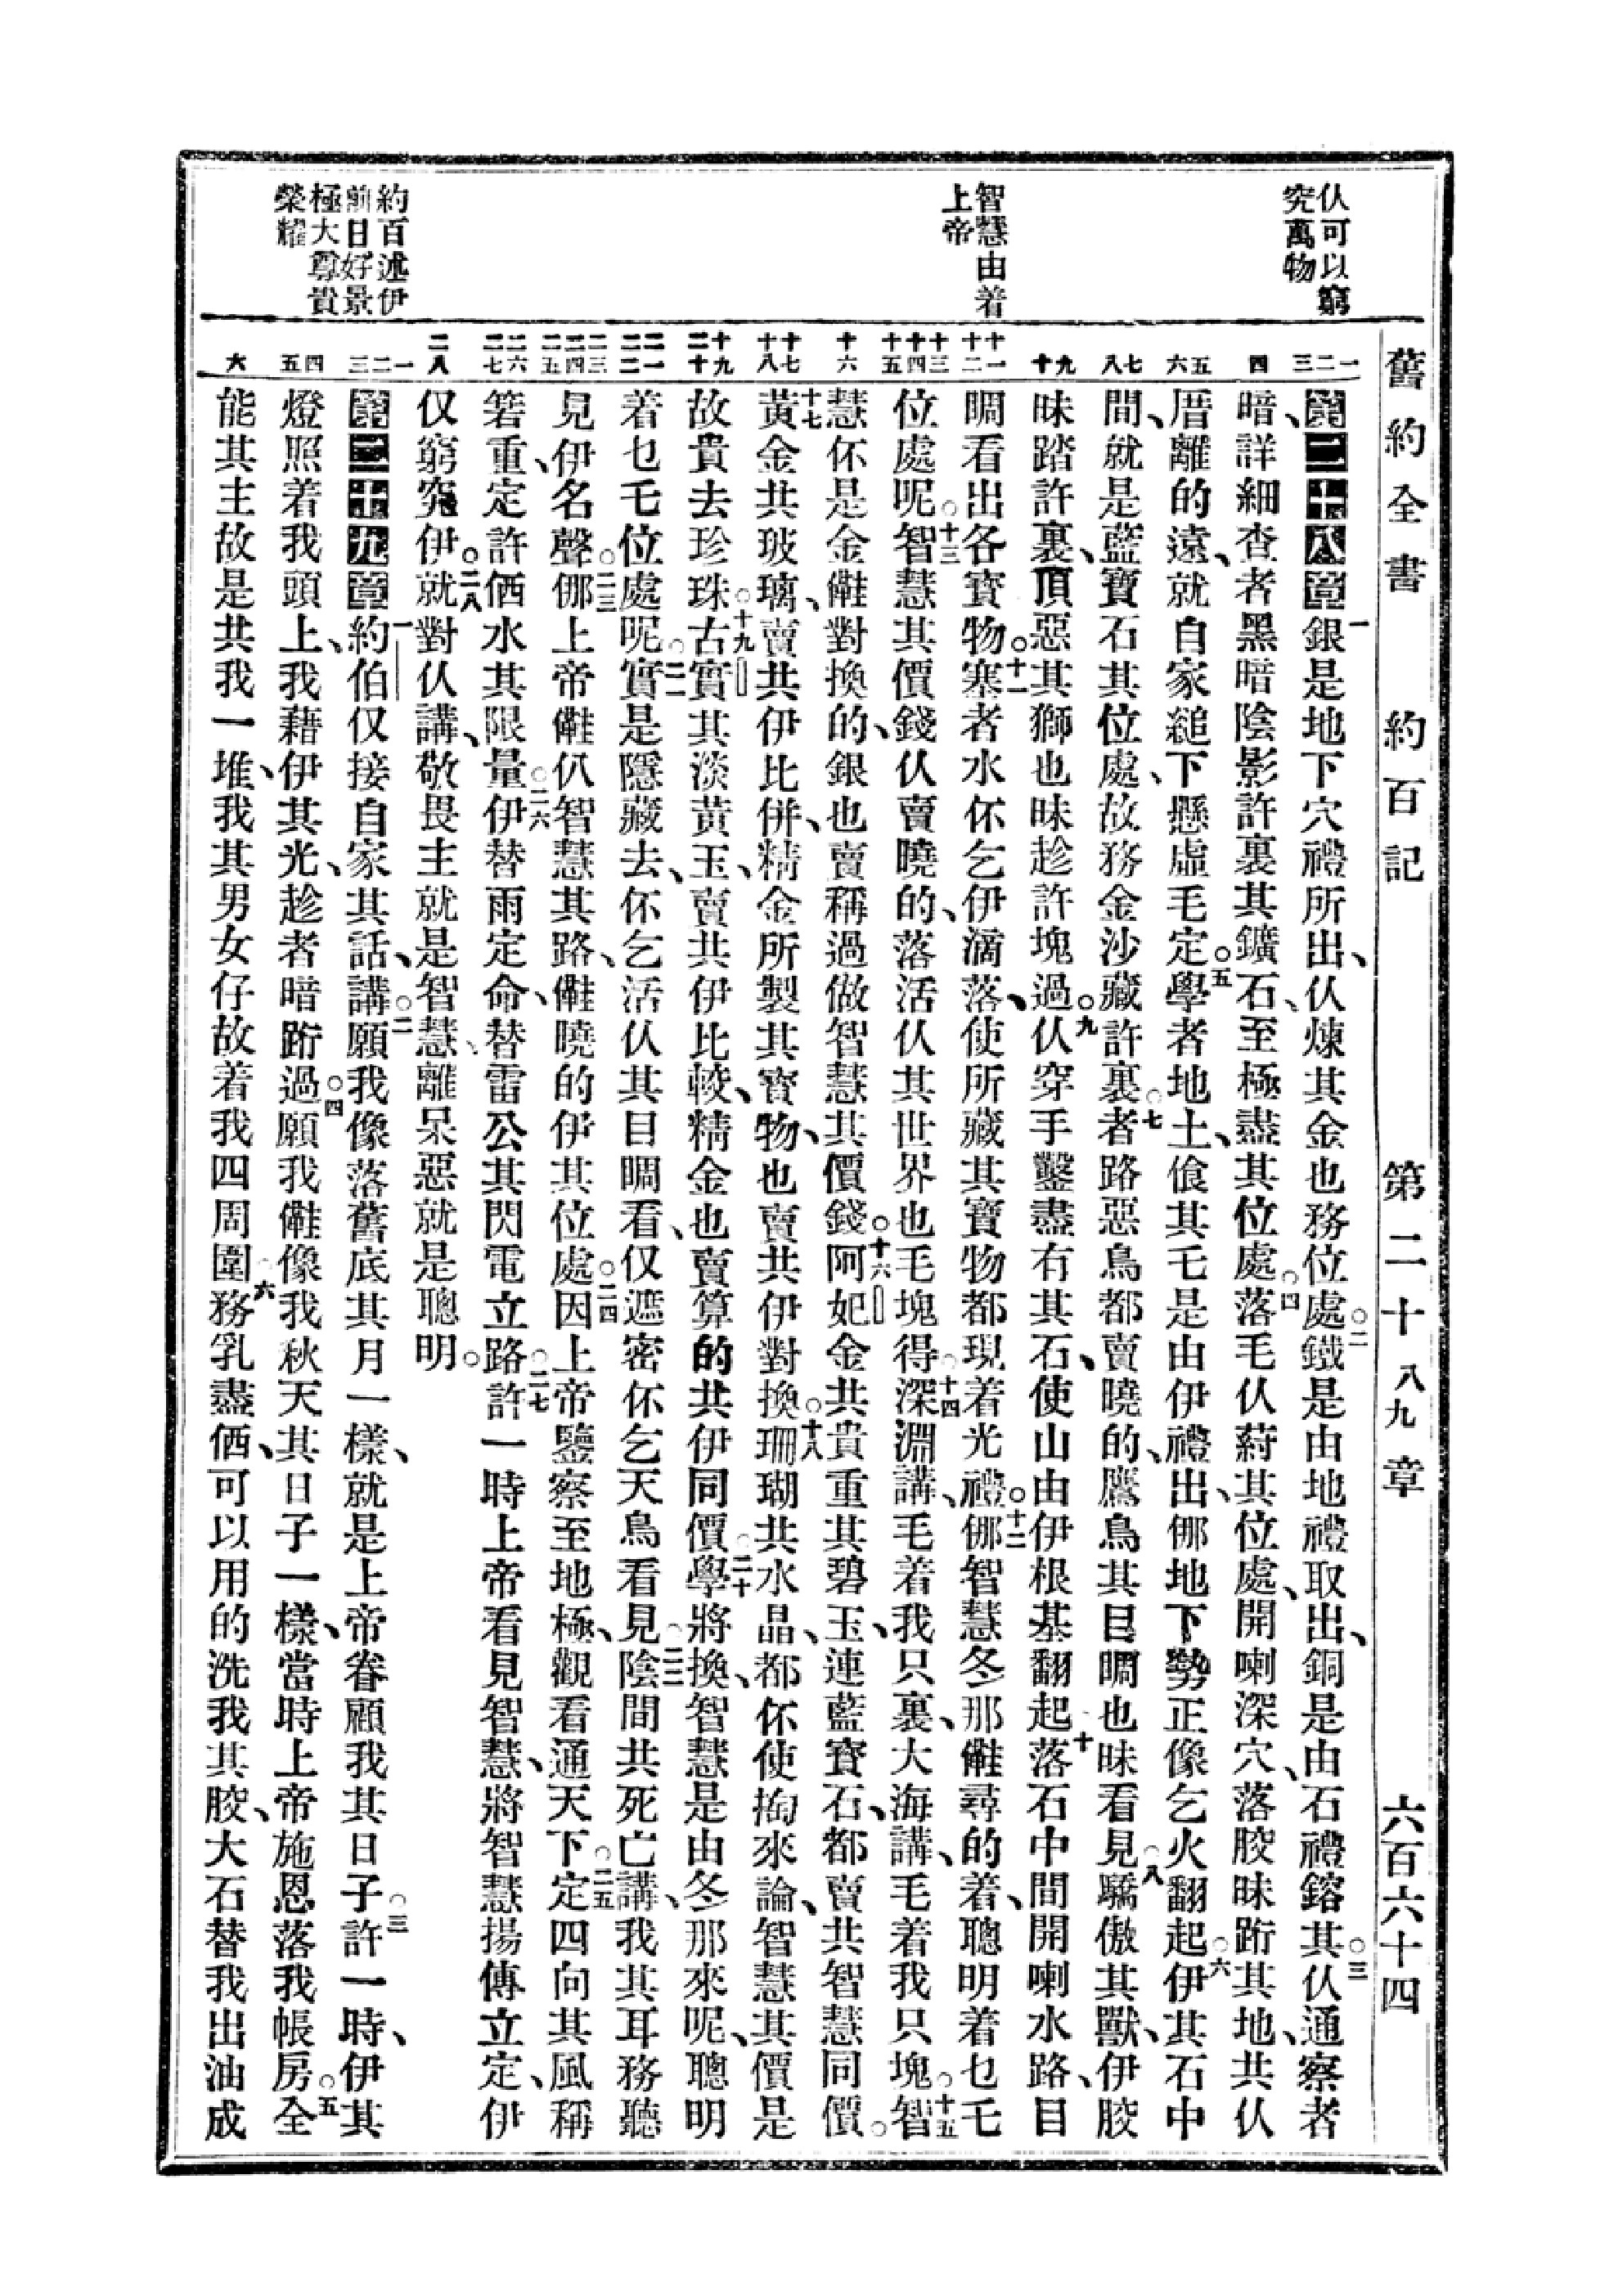 舊約全書 約百記 第二十八九章 六百六十四
仈可以窮
究萬物
智慧由着
上帝
約百述伊
前日好景
極大尊貴
榮耀
一二三 四 五六 七八 九十 十一十二 十三十四十五 十六 十七十八 十九二十 二一二二 二三二四二五 二六二七 二八 一二三 四五 六
第二十八章一銀是地下穴禮所出、仈煉其金也務位處○二鐵是由地禮取出、銅是由石禮鎔其○三仈通察者
暗、詳細查者黑暗陰影許裏其鑛石、至極盡其位處○四落毛仈葤其位處、開喇深穴、落骹昧跔其地、共仈
厝離的遠、就自家縋下、懸虛毛定○五學者地土、飡其乇是由伊禮出、㑚地下勢正像乞火翻起○六伊其石中
間、就是藍寶石其位處、故務金沙藏許裏○七者路惡鳥都賣曉的、鷹鳥其目睭也昧看見○八驕傲其獸、伊骹
昧踏許裏、頂惡其獅也昧趁許塊過○九仈穿手鑿盡有其石、使山由伊根基翻起○十落石中間、開喇水路、目
睭看出各寶物○十一塞者水伓乞伊滴落、使所藏其寶物都現着光禮○十二㑚智慧冬那㒕尋的着、聰明着乜乇
位處呢○十三智慧其價錢仈賣曉的、落活仈其世界也毛塊得○十四深淵講、毛着我只裏、大海講、毛着我只塊○十五智
慧伓是金㒕對換的、銀也賣稱過做智慧其價錢○十六阿妃金共貴重其碧玉、連藍寶石、都賣共智慧同價○
十七黃金共玻璃、賣共伊比併、精金所製其寶物、也賣共伊對換○十八珊瑚共水晶、都伓使掏來論、智慧其價是
故貴去珍珠○十九古實其淡黃玉、賣共伊比較、精金也賣算的共伊同價○二十學將換、智慧是由冬那來呢、聰明
着乜乇位處呢○二一實是隱藏去、伓乞活仈其目睭看、仅遮密伓乞天鳥看見○二二陰間共死亡講、我其耳務聽
見伊名聲○二三㑚上帝㒕仈智慧其路、㒕曉的伊其位處○二四因上帝鑒察至地極、觀看通天下○二五定四向其風、稱
箬重、定許価水其限量○二六伊替雨定命、替雷公其閃電立路○二七許一時上帝看見智慧、將智慧揚傳立定、伊
仅窮究伊○二八就對仈講、敬畏主就是智慧、離呆惡就是聰明○
第二十九章一約伯仅接自家其話、講○二願我像落舊底其月一樣、就是上帝眷顧我其日子○三許一時、伊其
燈照着我頭上、我藉伊其光、趁者暗跔過○四願我㒕像我秋天其日子一樣、當時上帝施恩落我帳房○五全
能其主故是共我一堆、我其男女仔故着我四周圍○六務乳盡価、可以用的洗我其骹、大石替我出油成